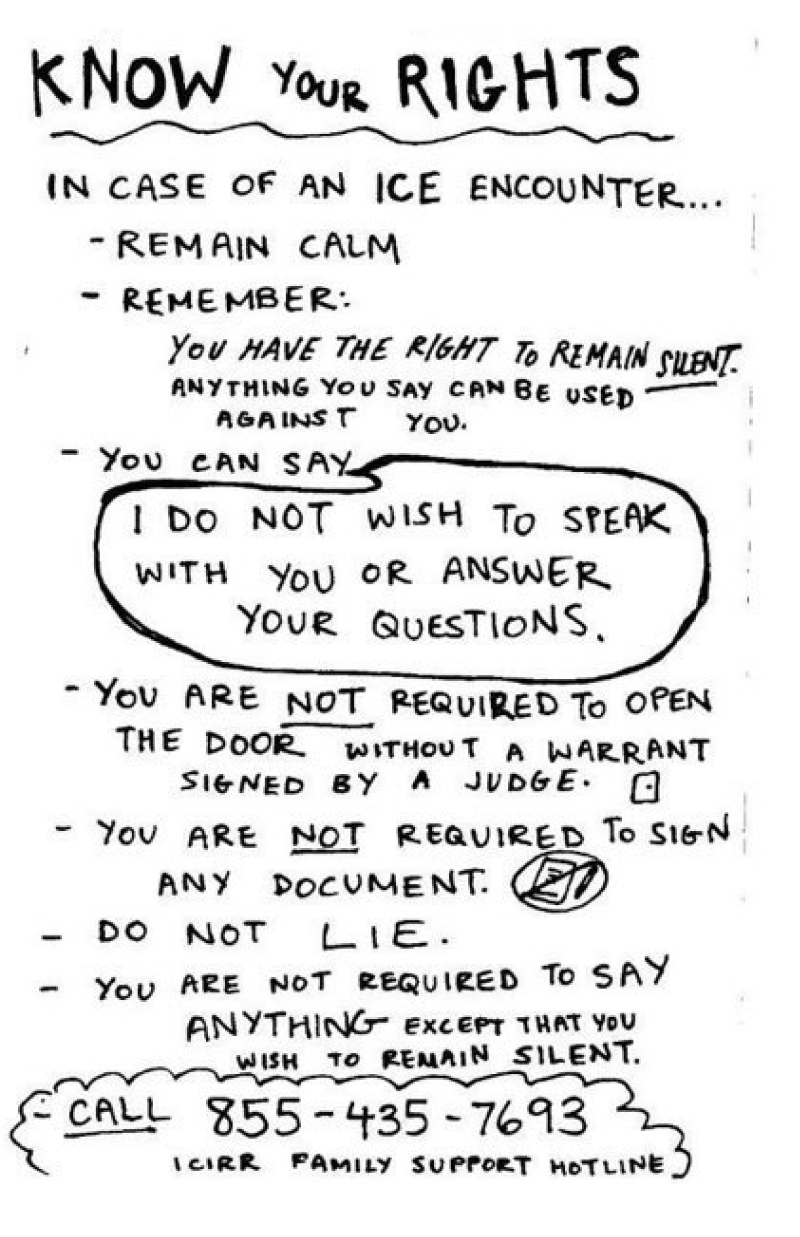 KNOW YOUR RIGHTS
IN CASE OF AN ICE ENCOUNTER...
- REMAIN CALM
- REMEMBER:
YOU HAVE THE RIGHT TO REMAIN SILENT.
ANYTHING YOU SAY CAN BE USED
AGAINST YOU.
- YOU CAN SAY
I DO NOT WISH TO SPEAK
WITH YOU OR ANSWER
YOUR QUESTIONS.
- YOU ARE NOT REQUIRED TO OPEN
THE DOOR WITHOUT A WARRANT
SIGNED BY A JUDGE.
- YOU ARE NOT REQUIRED TO SIGN
ANY DOCUMENT.
- DO NOT LIE.
- YOU ARE NOT REQUIRED TO SAY
ANYTHING EXCEPT THAT YOU
WISH TO REMAIN SILENT.
- CALL 855-435-7693
ICIRR FAMILY SUPPORT HOTLINE